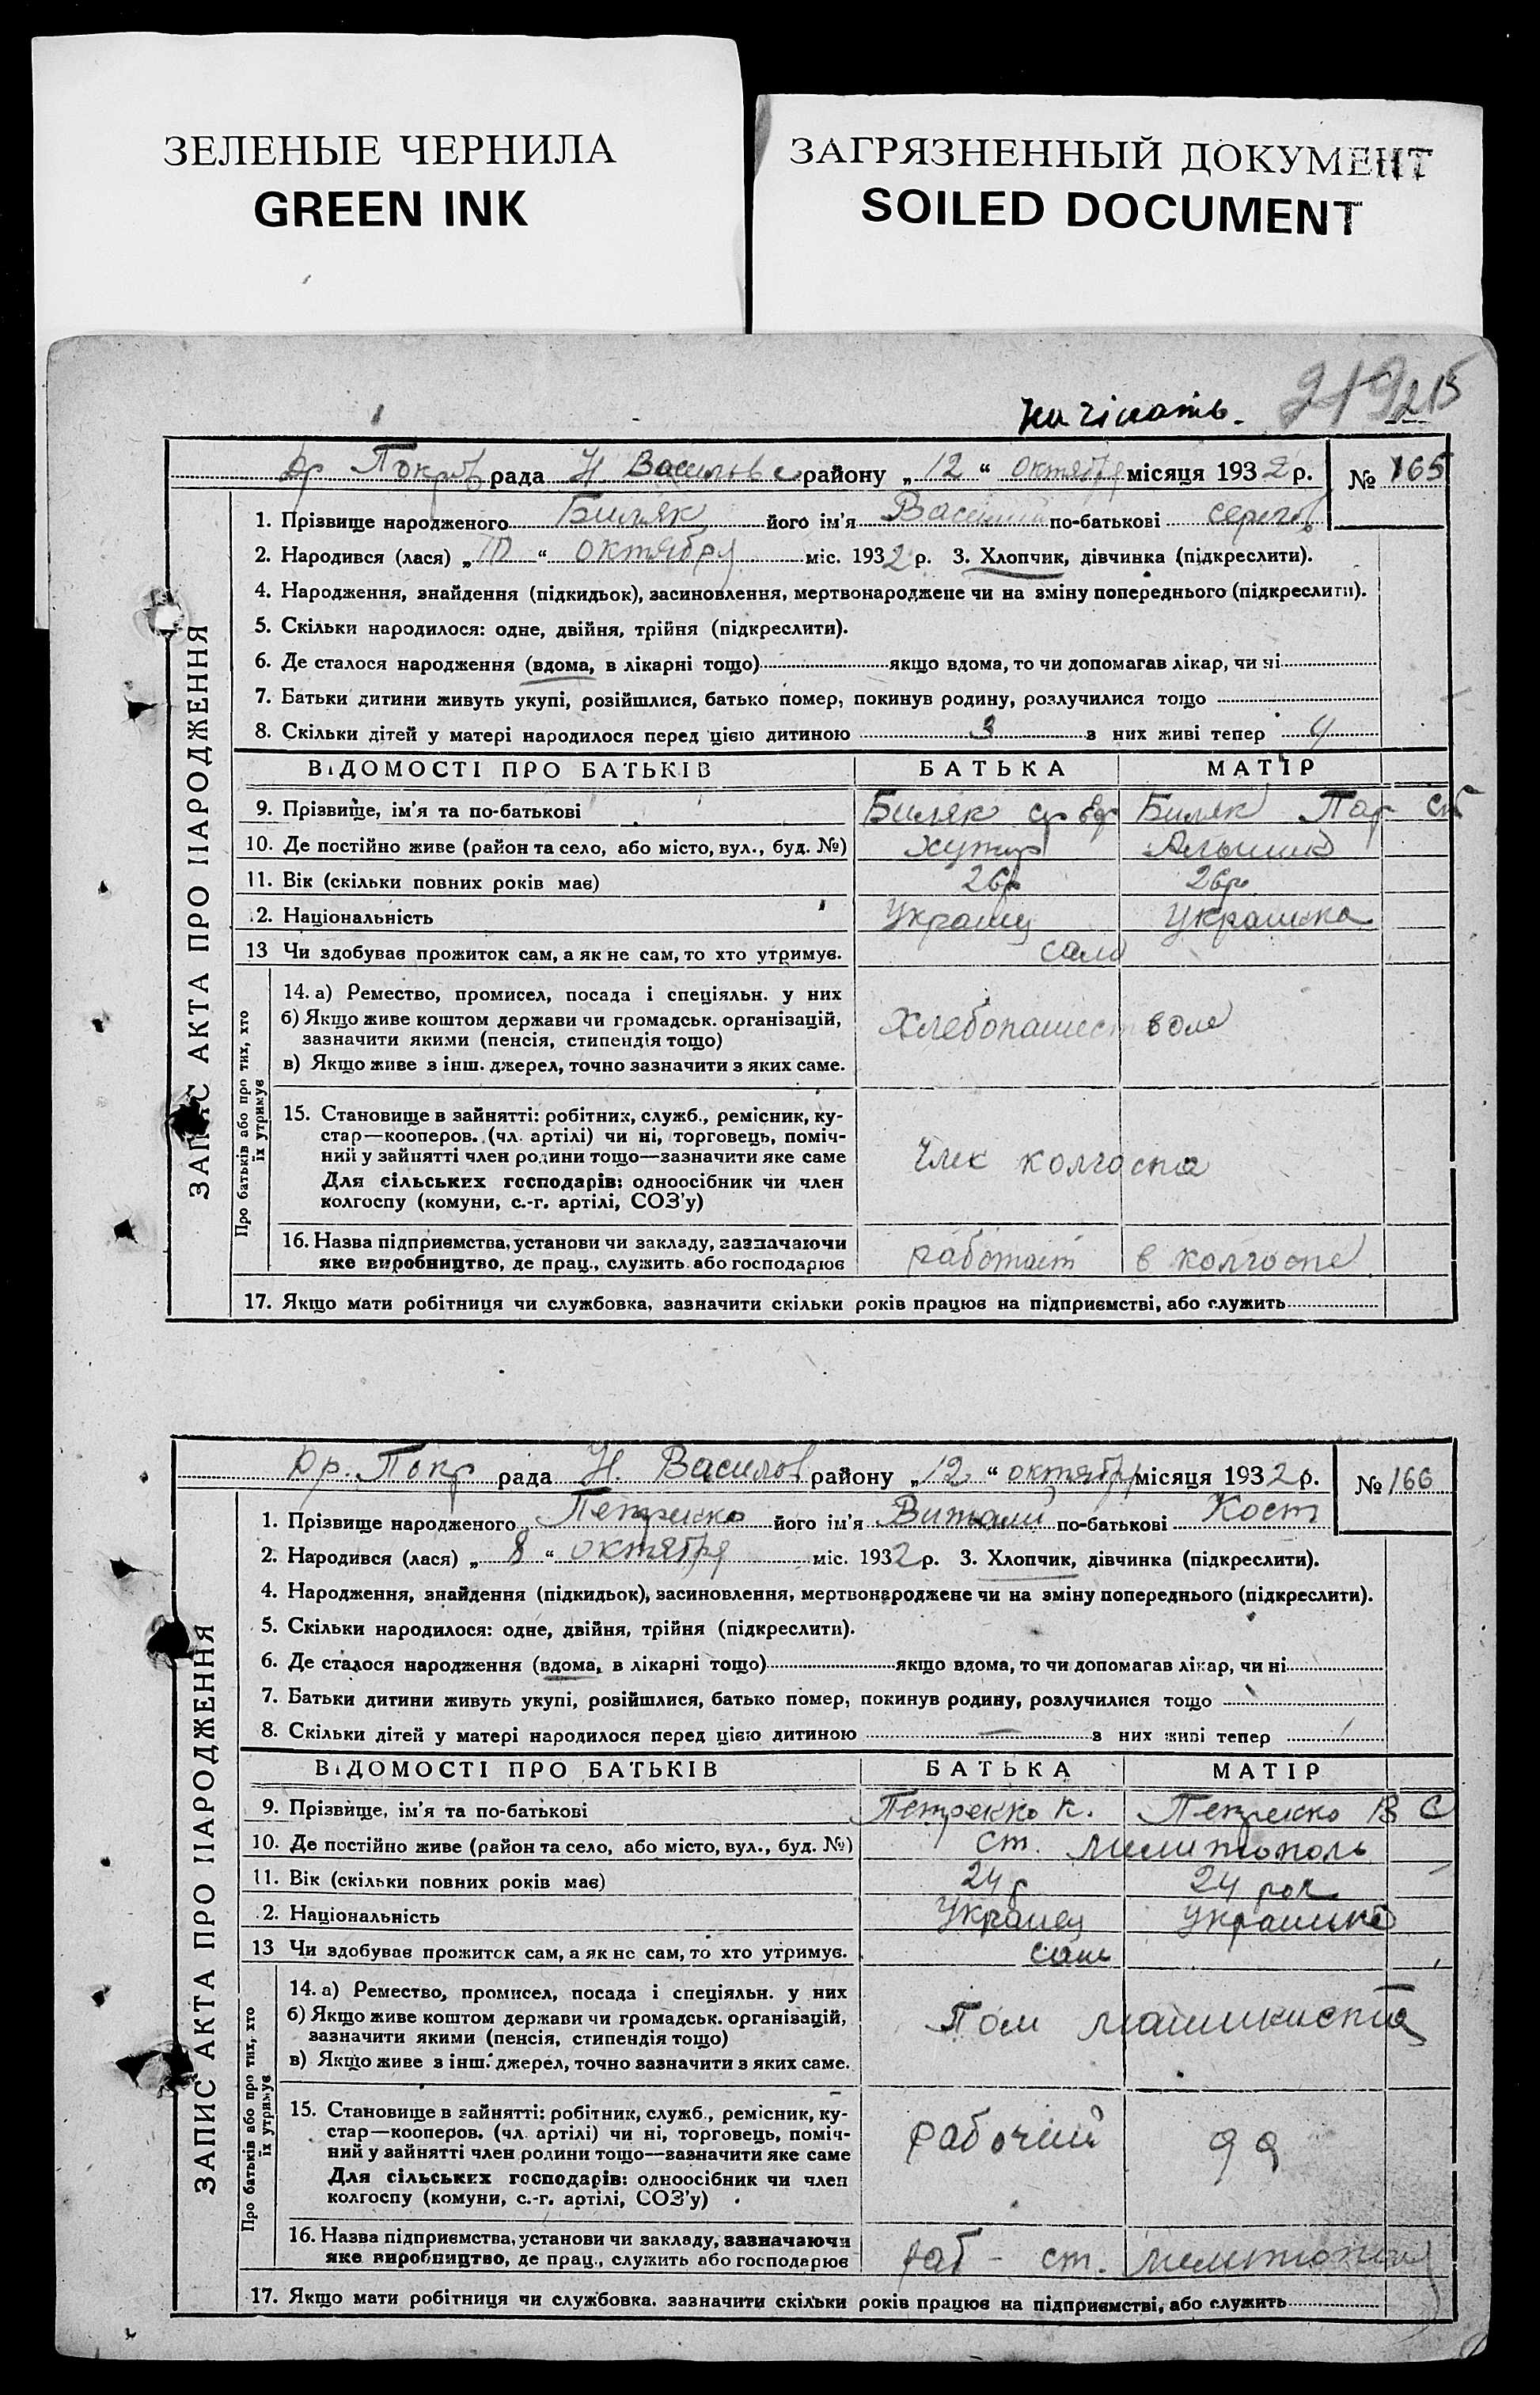 ЗЕЛЕНЫЕ ЧЕРНИЛА
GREEN INK
ЗАГРЯЗНЕННЫЙ ДОКУМЕНТ
SOILED DOCUMENT
219 215
ЗАПИС АКТА ПРО НАРОДЖЕННЯ
Др Покров рада Н Василовс району „12“ октября місяця 1932 р. № 165
1. Прізвище народженого Биляк його ім'я Василий по-батькові Серегов
2. Народився (лася) „10“ октября міс. 1932 р. 3. Хлопчик, дівчинка (підкреслити).
4. Народження, знайдення (підкидьок), засиновлення, мертвонароджене чи на зміну попереднього (підкреслити).
5. Скільки народилося: одне, двійня, трійня (підкреслити).
6. Де сталося народження (вдома, в лікарні тощо) якщо вдома, то чи допомагав лікар, чи ні
7. Батьки дитини живуть укупі, розійшлися, батько помер, покинув родину, розлучилися тощо
8. Скільки дітей у матері народилося перед цією дитиною 3 з них живі тепер 4
ВІДОМОСТІ ПРО БАТЬКІВ БАТЬКА МАТІР
9. Прізвище, ім'я та по-батькові Биляк Биляк Пар
10. Де постійно живе (район та село, або місто, вул., буд. №) Хутор
11. Вік (скільки повних років має) 26р 26р
12. Національність Украинец Украинка
13 Чи здобував прожиток сам, а як не сам, то хто утримує. сам
Про батьків або про тих, хто їх утримує
14. а) Ремество, промисел, посада і спеціяльн. у них
б) Якщо живе коштом держави чи громадськ. організацій,
зазначити якими (пенсія, стипендія тощо)
в) Якщо живе з інш. джерел, точно зазначити з яких саме.
Хлебопашеством
15. Становище в зайнятті: робітник, служб., ремісник, ку-
стар—кооперов. (чл. артілі) чи ні, торговець, поміч-
ний у зайнятті член родини тощо—зазначити яке саме
Для сільських господарів: одноосібник чи член
колгоспу (комуни, с.-г. артілі, СОЗ'у)
член колгоспа
16. Назва підприємства, установи чи закладу, зазначаючи
яке виробництво, де прац., служить або господарює
работает в колгоспе
17. Якщо мати робітниця чи службовка, зазначити скільки років працює на підприємстві, або служить
ЗАПИС АКТА ПРО НАРОДЖЕННЯ
Др. Покр рада Н. Василов району „12“ октября місяця 1932 р. № 166
1. Прізвище народженого Петренко його ім'я Виталий по-батькові Кост
2. Народився (лася) „8“ октября міс. 1932 р. 3. Хлопчик, дівчинка (підкреслити).
4. Народження, знайдення (підкидьок), засиновлення, мертвонароджене чи на зміну попереднього (підкреслити).
5. Скільки народилося: одне, двійня, трійня (підкреслити).
6. Де сталося народження (вдома, в лікарні тощо) якщо вдома, то чи допомагав лікар, чи ні
7. Батьки дитини живуть укупі, розійшлися, батько помер, покинув родину, розлучилися тощо
8. Скільки дітей у матері народилося перед цією дитиною — з них живі тепер 1
ВІДОМОСТІ ПРО БАТЬКІВ БАТЬКА МАТІР
9. Прізвище, ім'я та по-батькові Петренко К. Петренко В С
10. Де постійно живе (район та село, або місто, вул., буд. №) ст. Мелитополь
11. Вік (скільки повних років має) 24 р 24 рок
12. Національність Украинец Украинка
13 Чи здобував прожиток сам, а як не сам, то хто утримує. сам
Про батьків або про тих, хто їх утримує
14. а) Ремество, промисел, посада і спеціяльн. у них
б) Якщо живе коштом держави чи громадськ. організацій,
зазначити якими (пенсія, стипендія тощо)
в) Якщо живе з інш. джерел, точно зазначити з яких саме.
Пом машиниста
15. Становище в зайнятті: робітник, служб., ремісник, ку-
стар—кооперов. (чл. артілі) чи ні, торговець, поміч-
ний у зайнятті член родини тощо—зазначити яке саме
Для сільських господарів: одноосібник чи член
колгоспу (комуни, с.-г. артілі, СОЗ'у)
рабочий
16. Назва підприємства, установи чи закладу, зазначаючи
яке виробництво, де прац., служить або господарює
раб - ст. Мелитополь
17. Якщо мати робітниця чи службовка, зазначити скільки років працює на підприємстві, або служить